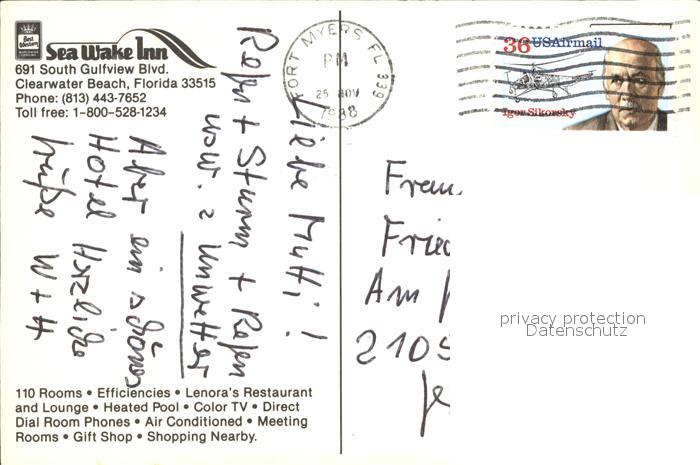 Best Western
Sea Wake Inn
691 South Gulfview Blvd.
Clearwater Beach, Florida 33515
Phone: (813) 443-7652
Toll free: 1-800-528-1234
Liebe Mutti!
Regen + Sturm + Regen
usw. = Unwetter
Aber ein schönes
Hotel Herzliche
Grüße W + H
110 Rooms • Efficiencies • Lenora's Restaurant
and Lounge • Heated Pool • Color TV • Direct
Dial Room Phones • Air Conditioned • Meeting
Rooms • Gift Shop • Shopping Nearby.
FORT MYERS FL 339
PM
25 NOV
1988
36 USAirmail
Igor Sikorsky
Frau
Am
privacy protection
Datenschutz